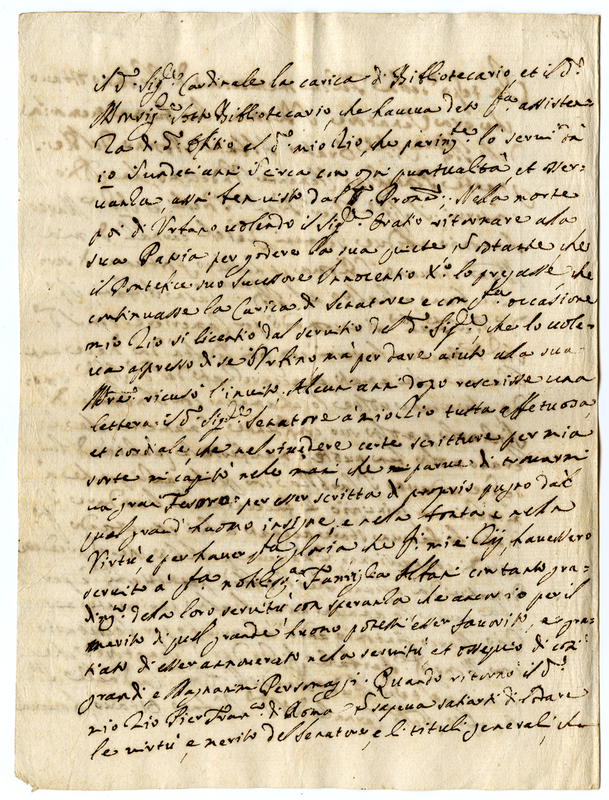 il d.º Sig.r Cardinale la carica di Bibliotecario, et il d.º
Monsig.r Sotto Bibliotecario, che haveva detto assisten-
za di d.º et d.º mio Zio, che lo servi
io Undeci anni Circa con ogni puntualità et osser-
vanza, assai ben visto dal Nella morte
poi di Urbano volendo il Sig.r Oratio ritornare alla
sua Patria per godere la sua quiete ostante che
il Pontefice suo successore Innocentio X.º lo pregasse che
continuasse la Carica di Senatore e con occasione
mio Zio si licentiò dal servitio del d.º Sig.r che lo vole-
va appresso di se Urbino mà per dare aiuto alla sua
ricusò l'invito, Alcuni anni dopo rescrisse una
lettera il d.º Sig.r Senatore à mio Zio tutta affetuosa,
et cordiale, che nel rivedere certe scritture per mia
sorte mi capitò nelle mani che mi parve di trovarmi
un gran Tesoro: per esser scritta di proprio pugno dal
quel grand' huomo insigne, e nella bontà e nella
Virtù e per haver gloria che miei Zij, havessero
servito à nobilis.ma Famiglia Albani con tanto gra-
dim.to della loro servitù con speranza che ancor io per il
merito di quel grande huomo potessi esser favorito, e gra-
tiato di esser annoverato nella servitù et ossequio di così
grandi, e Magnanimi Personaggi. Quando ritornò il d.º
mio Zio Pier Fran.co di Roma sapeva satiarsi di lodare
le virtù, e merito del Senatore, e li tituli generali, che